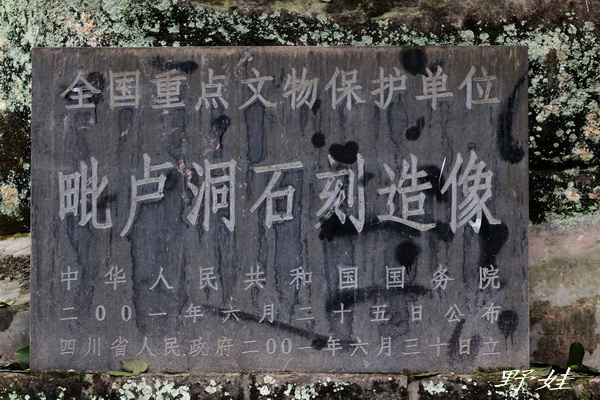 全国重点文物保护单位
毗卢洞石刻造像
中华人民共和国国务院
二00一年六月二十五日公布
四川省人民政府二00一年六月三十日立
野娃